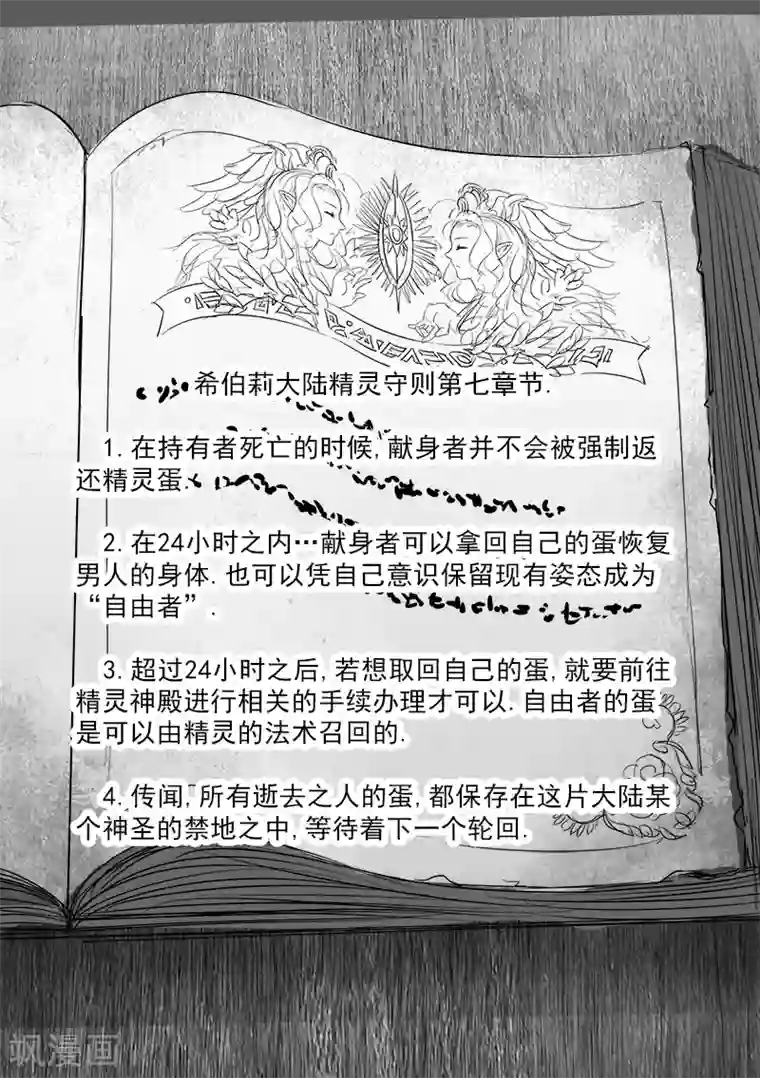 希伯莉大陆精灵守则第七章节.
1. 在持有者死亡的时候,献身者并不会被强制返
还精灵蛋.
2. 在24小时之内…献身者可以拿回自己的蛋恢复
男人的身体. 也可以凭自己意识保留现有姿态成为
“自由者”.
3. 超过24小时之后,若想取回自己的蛋,就要前往
精灵神殿进行相关的手续办理才可以. 自由者的蛋
是可以由精灵的法术召回的.
4. 传闻,所有逝去之人的蛋,都保存在这片大陆某
个神圣的禁地之中,等待着下一个轮回.
飒漫画